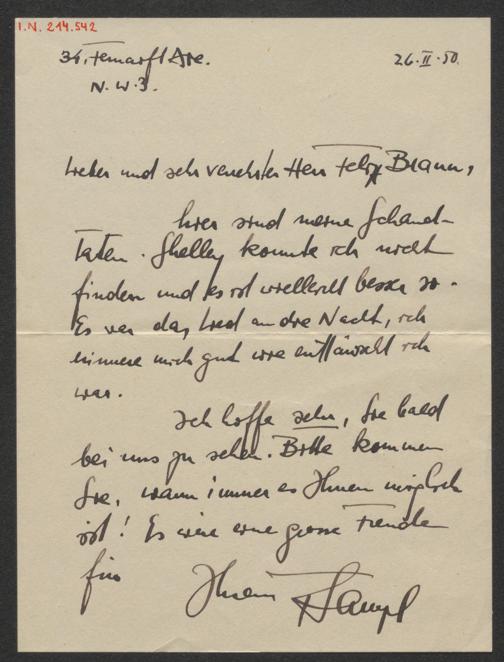 I.N. 214.542
34, Ferncroft Ave.
26.II.50.
N.W.3.
Lieber und sehr verehrter Herr Felix Braun,
hier sind meine Schand-
taten. Shelley konnte ich nicht
finden und es ist vielleicht besser so.
Es war das Lied an die Nacht, ich
erinnere mich gut wie enttäuscht ich
war.
Ich hoffe sehr, Sie bald
bei uns zu sehen. Bitte kommen
Sie, wann immer es Ihnen möglich
ist! Es wäre eine grosse Freude
für
Ihren